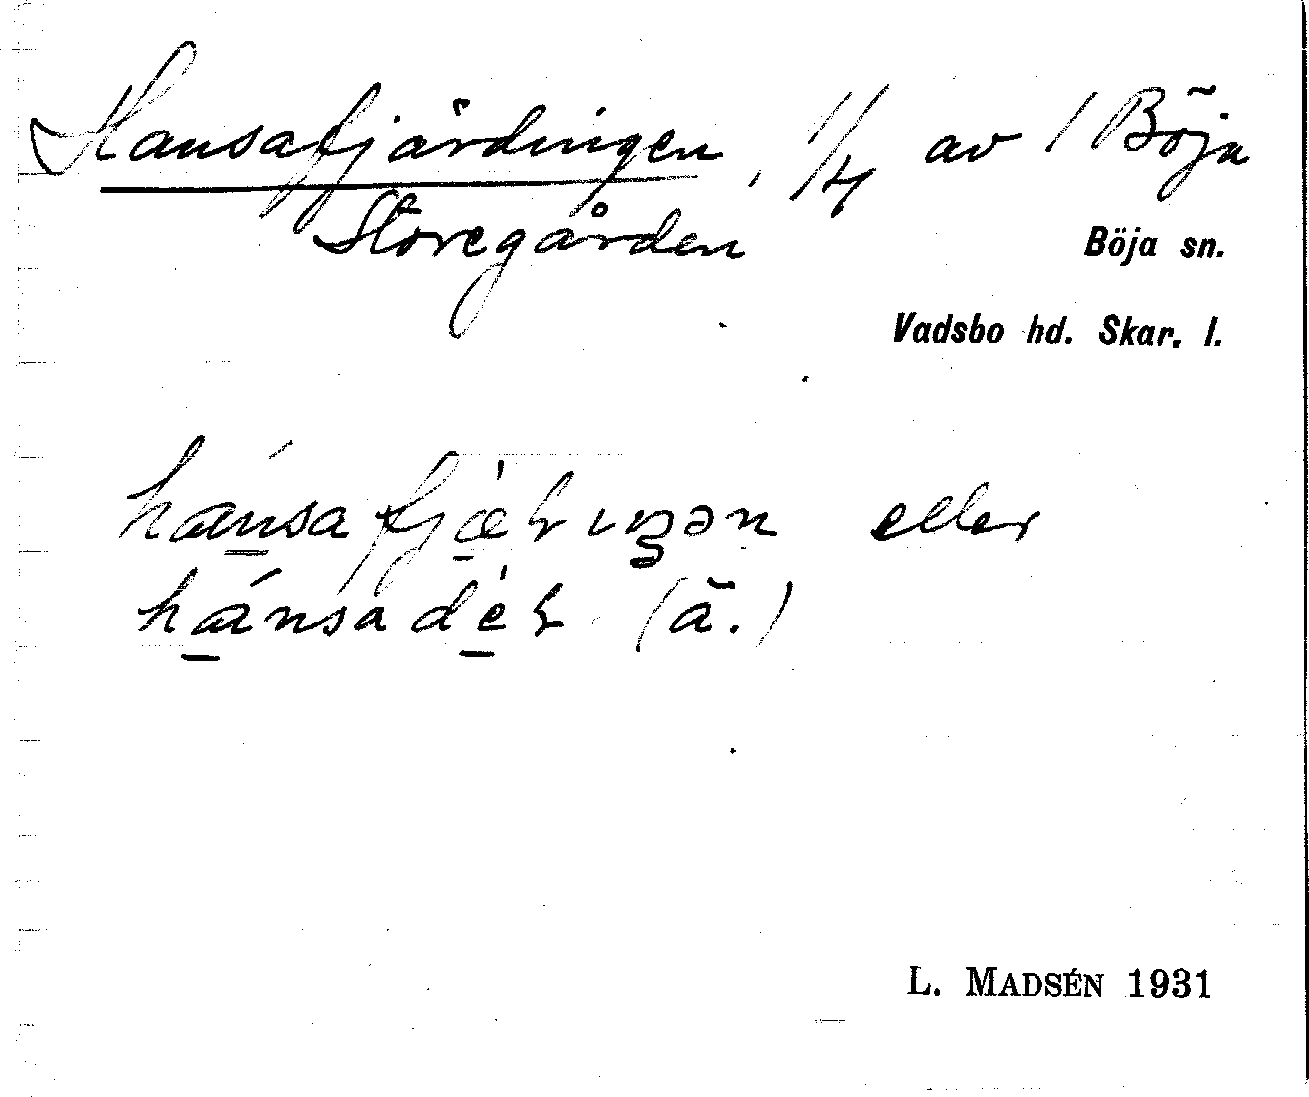 Hansafjärdingen, 1/4 av 1 Böja
Storegården
Böja sn.
Vadsbo hd. Skar. l.
eller
(ä.)
L. MADSÉN 1931